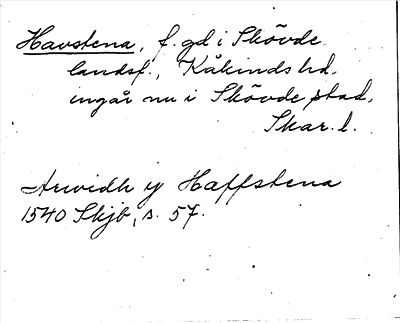 Havstena, f. gd i Skövde
landsf., Kåkinds hd,
ingår nu i Skövde stad,
Skar. l.
Arwidh y Haffstena
1540 Skjb, s. 57.